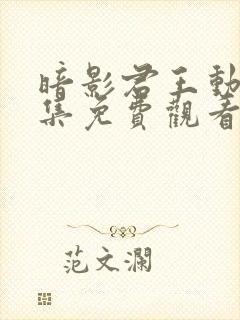 暗影君王動
集免費觀看
范文瀾